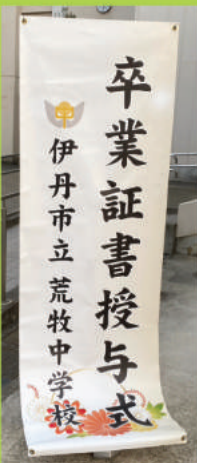 卒業証書授与式
伊丹市立 荒牧中学校